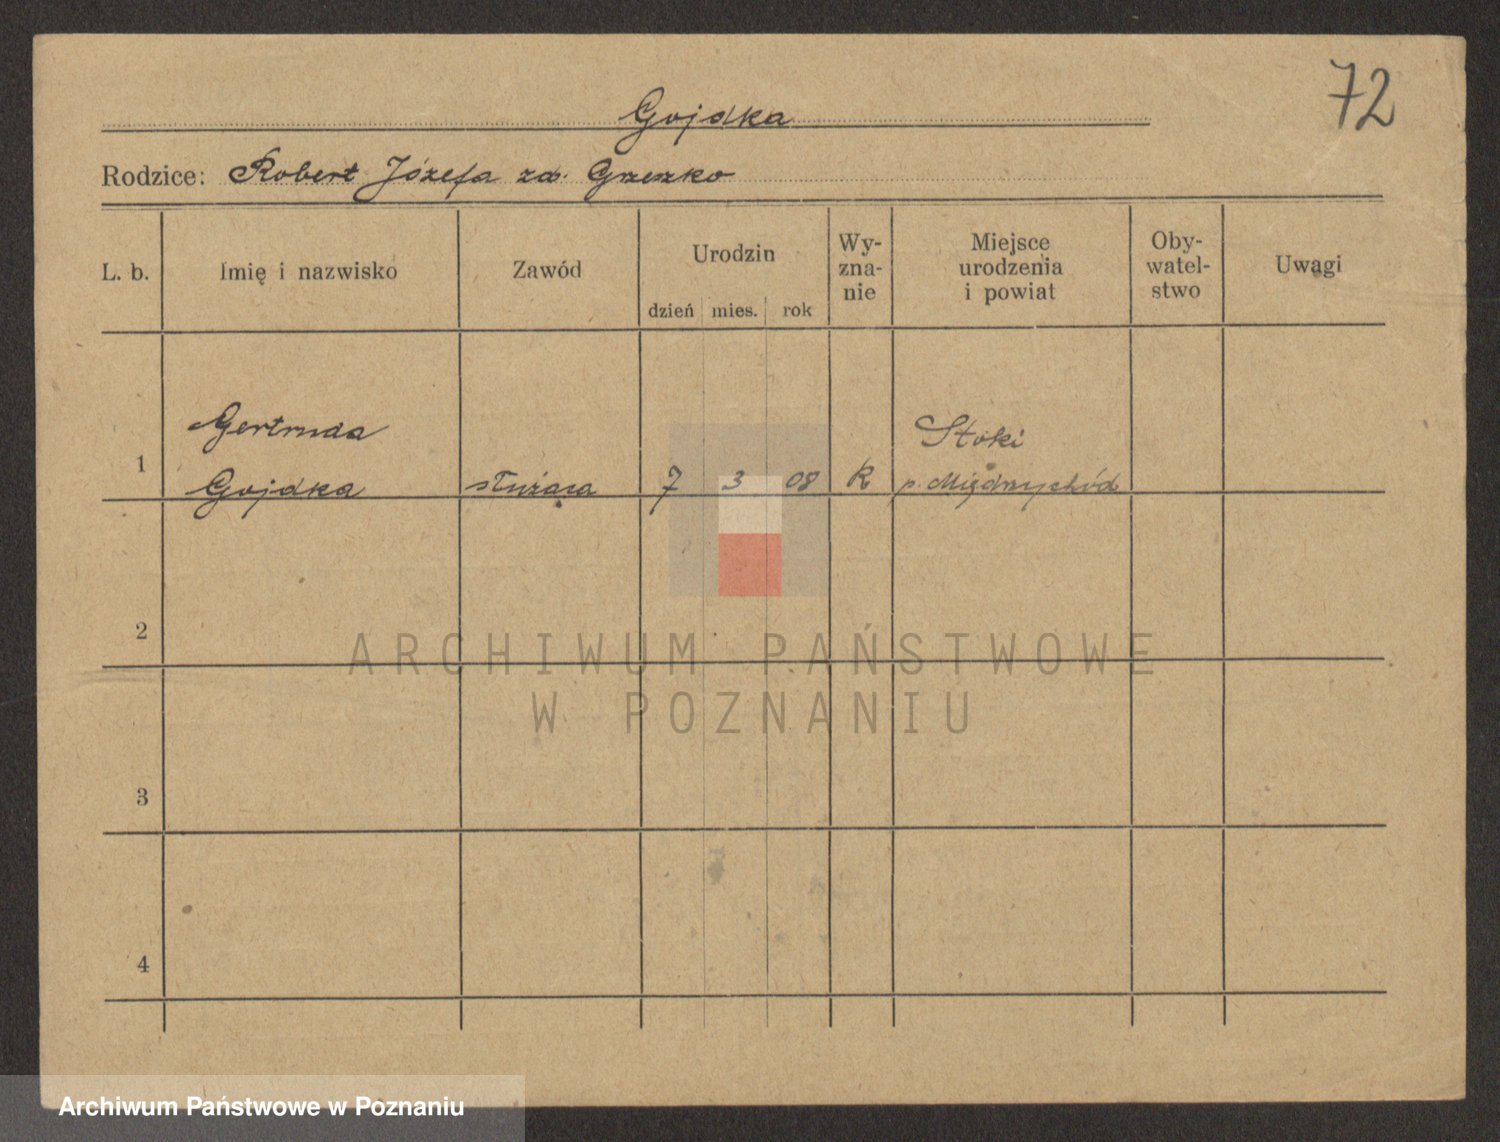 72
Gojdka
Rodzice: Robert Józefa zd. Grzeszko
L. b. Imię i nazwisko Zawód Urodzin Wy-zna-nie Miejsce urodzenia i powiat Oby-watel-stwo Uwagi
dzień mies. rok
Gertruda Stoki
1 Gojdka służąca 7 3 08 R p. Międzychód
2
ARCHIWUM PAŃSTWOWE
W POZNANIU
3
4
Archiwum Państwowe w Poznaniu